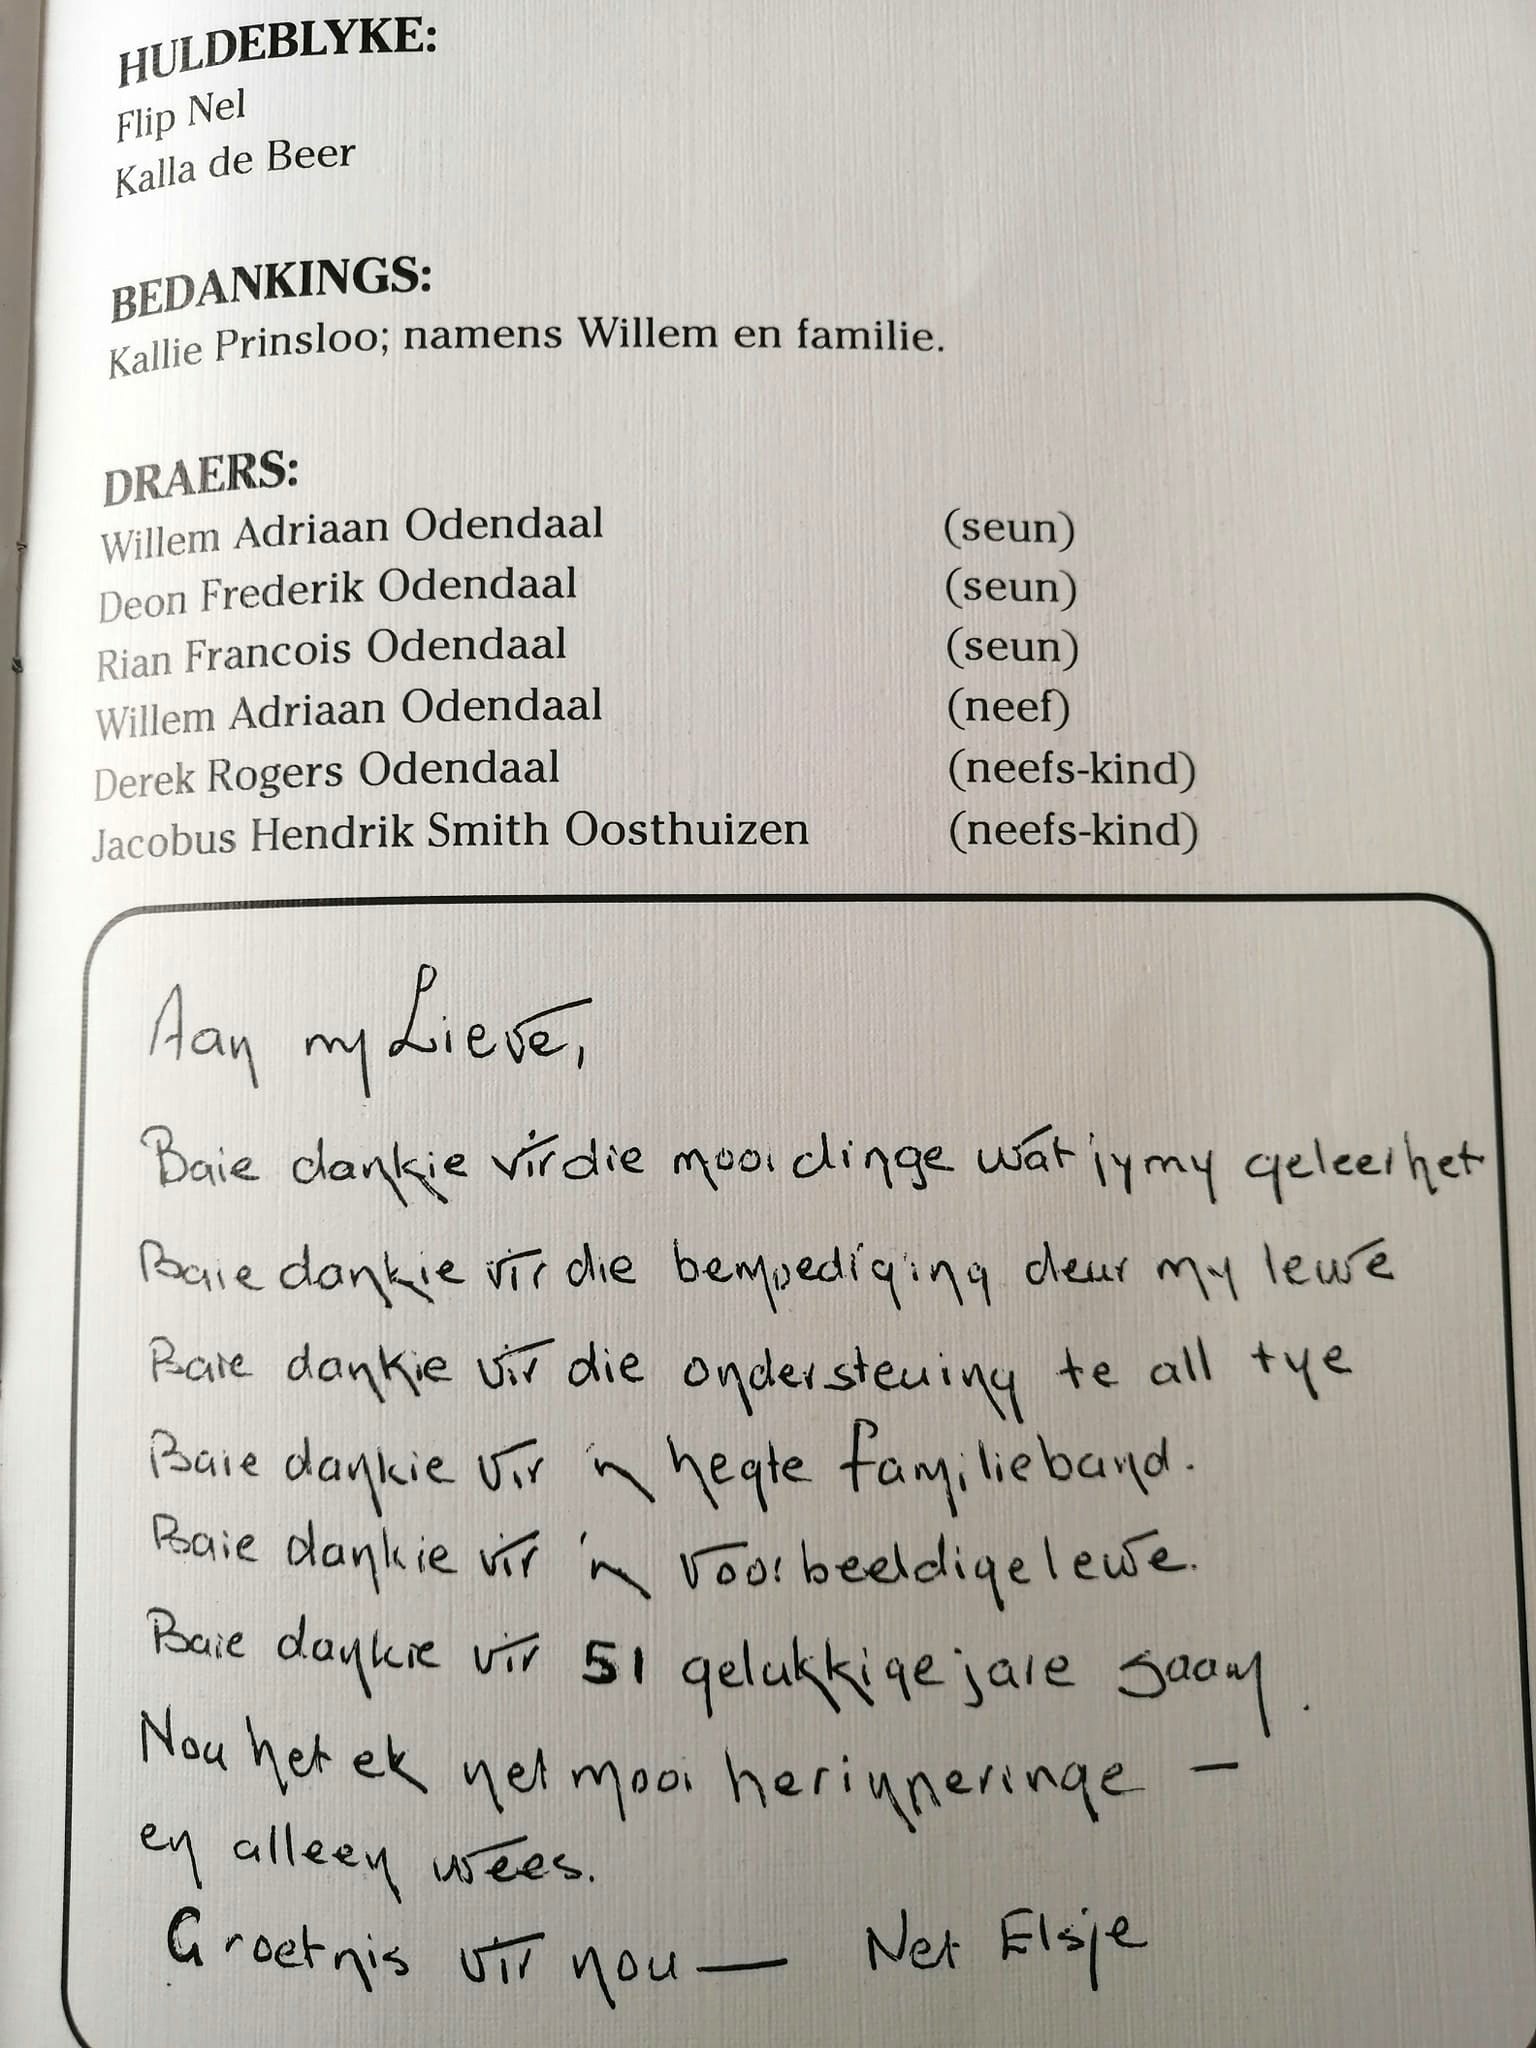 HULDEBLYKE:
Flip Nel
Kalla de Beer
BEDANKINGS:
Kallie Prinsloo; namens Willem en familie.
DRAERS:
Willem Adriaan Odendaal (seun)
Deon Frederik Odendaal (seun)
Rian Francois Odendaal (seun)
Willem Adriaan Odendaal (neef)
Derek Rogers Odendaal (neefs-kind)
Jacobus Hendrik Smith Oosthuizen (neefs-kind)
Aan my Lieve,
Baie dankie vir die mooi dinge wat jy my geleer het
Baie dankie vir die bemoediging deur my lewe
Baie dankie vir die ondersteuning te all tye
Baie dankie vir 'n hegte familieband.
Baie dankie vir 'n voorbeeldige lewe.
Baie dankie vir 51 gelukkige jare saam.
Nou het ek net mooi herinneringe —
en alleen wees.
Groetnis vir nou — Net Elsje